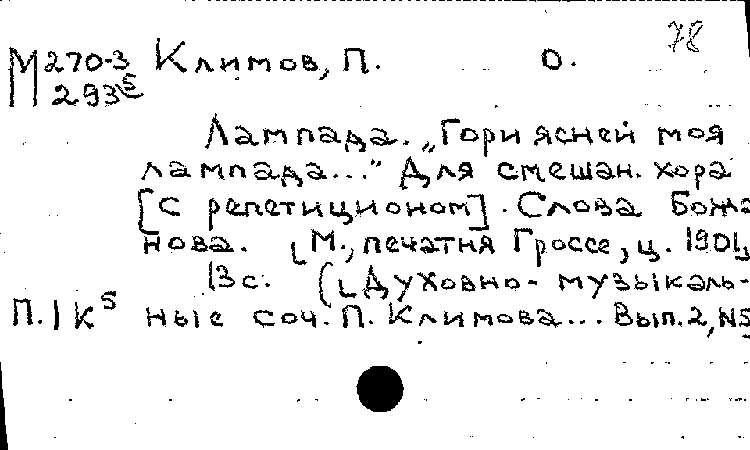 78
М270-3 Климов, П. О.
2935
Лампада. „Гори ясней моя
лампада..." Для смешан. хора
[с репетиционом]. Слова Божа
нова. [М., печатня Гроссе, ц. 1901]
13с. ([Духовно-музыкаль-
П.1к5 ные соч. П. Климова... Вып.2, N5